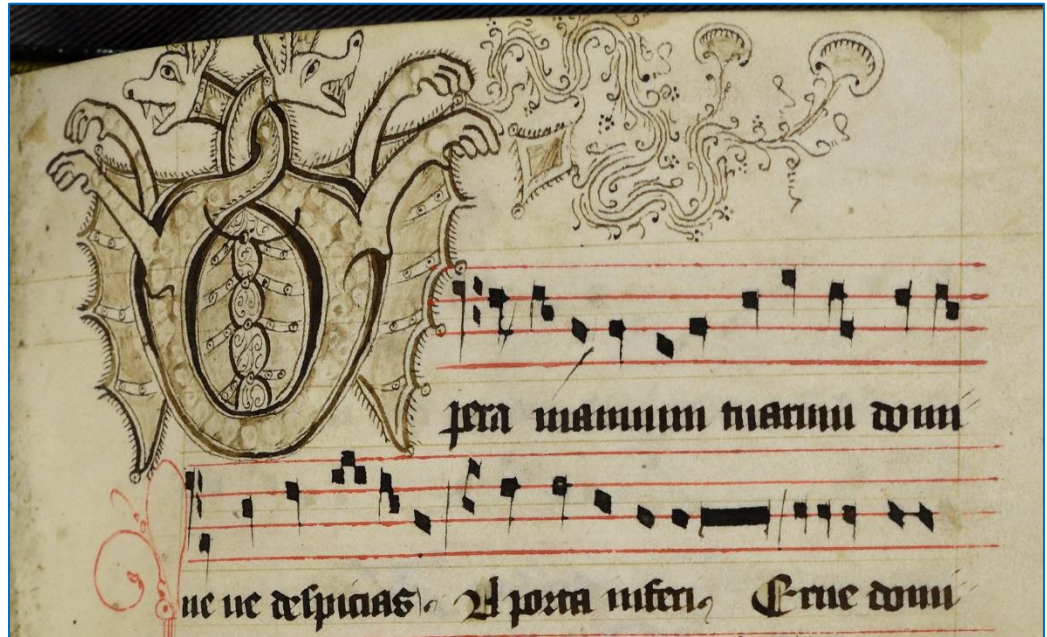 Opera manuum tuarum domi
ne ne despicias. A porta inferi. Erue domi